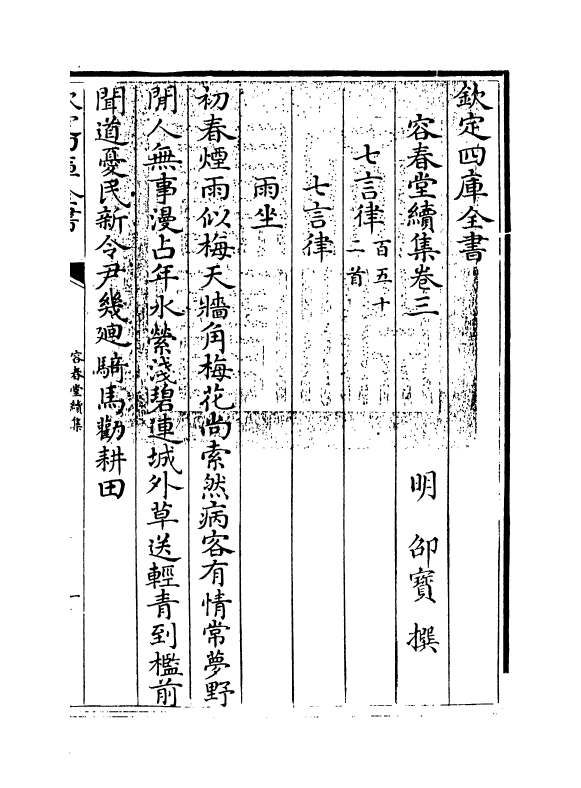 欽定四庫全書
容春堂續集卷三
明 邵寶 撰
七言律百五十二首
七言律
雨坐
初春煙雨似梅天牆角梅花尚索然病客有情常夢野
閒人無事漫占年水縈淺碧連城外草送輕青到檻前
聞道憂民新令尹幾廻騎馬勸耕田
容春堂續集
一